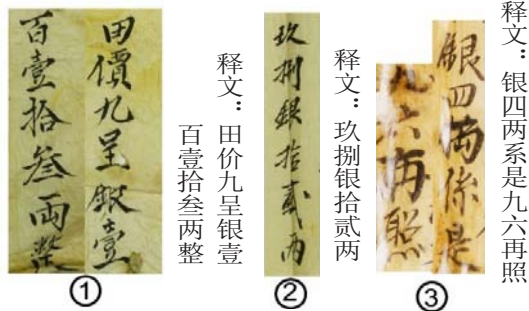 田價九呈銀壹
百壹拾叁兩整
释文：田价九呈银壹
百壹拾叁两整
①
玖捌銀拾貳兩
释文：玖捌银拾贰两
②
銀四兩係是
九六再照
释文：银四两系是九六再照
③